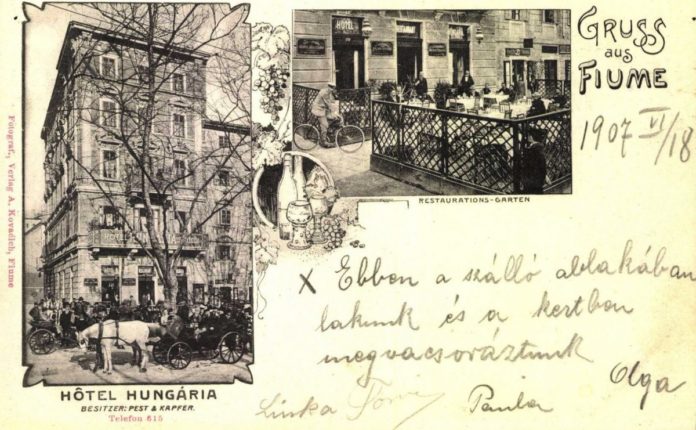 GRUSS
aus
FIUME
1907 VI/18
HÔTEL
RESTAURATIONS-GARTEN
Fotograf., Verlag A. Kovačich, Fiume
X Ebben a szálló ablakában
lakunk és a kertben
megvacsoráztunk
Olga
Linka
Paula
HÔTEL HUNGÁRIA
BESITZER: PEST & KAPFER.
Telefon 615